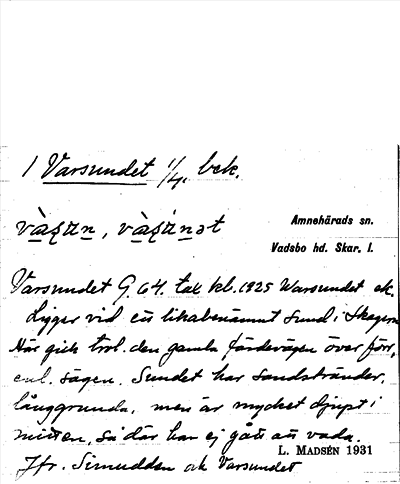 1 Varsundet 1/4, bek.
Amnehärads sn.
Vadsbo hd. Skar. l.
Varsundet G. 64. tax kl. 1925 Warsundet ek.
Ligger vid ett likabenämnt sund i Skagern
Här gick trol. den gamla färdevägen över förr,
enl. sägen. Sundet har sandstränder,
långgrunda, men är mycket djupt i
mitten, så där har ej gått att vada.
L. MADSÉN 1931
Jfr. Simudden och Varsundet